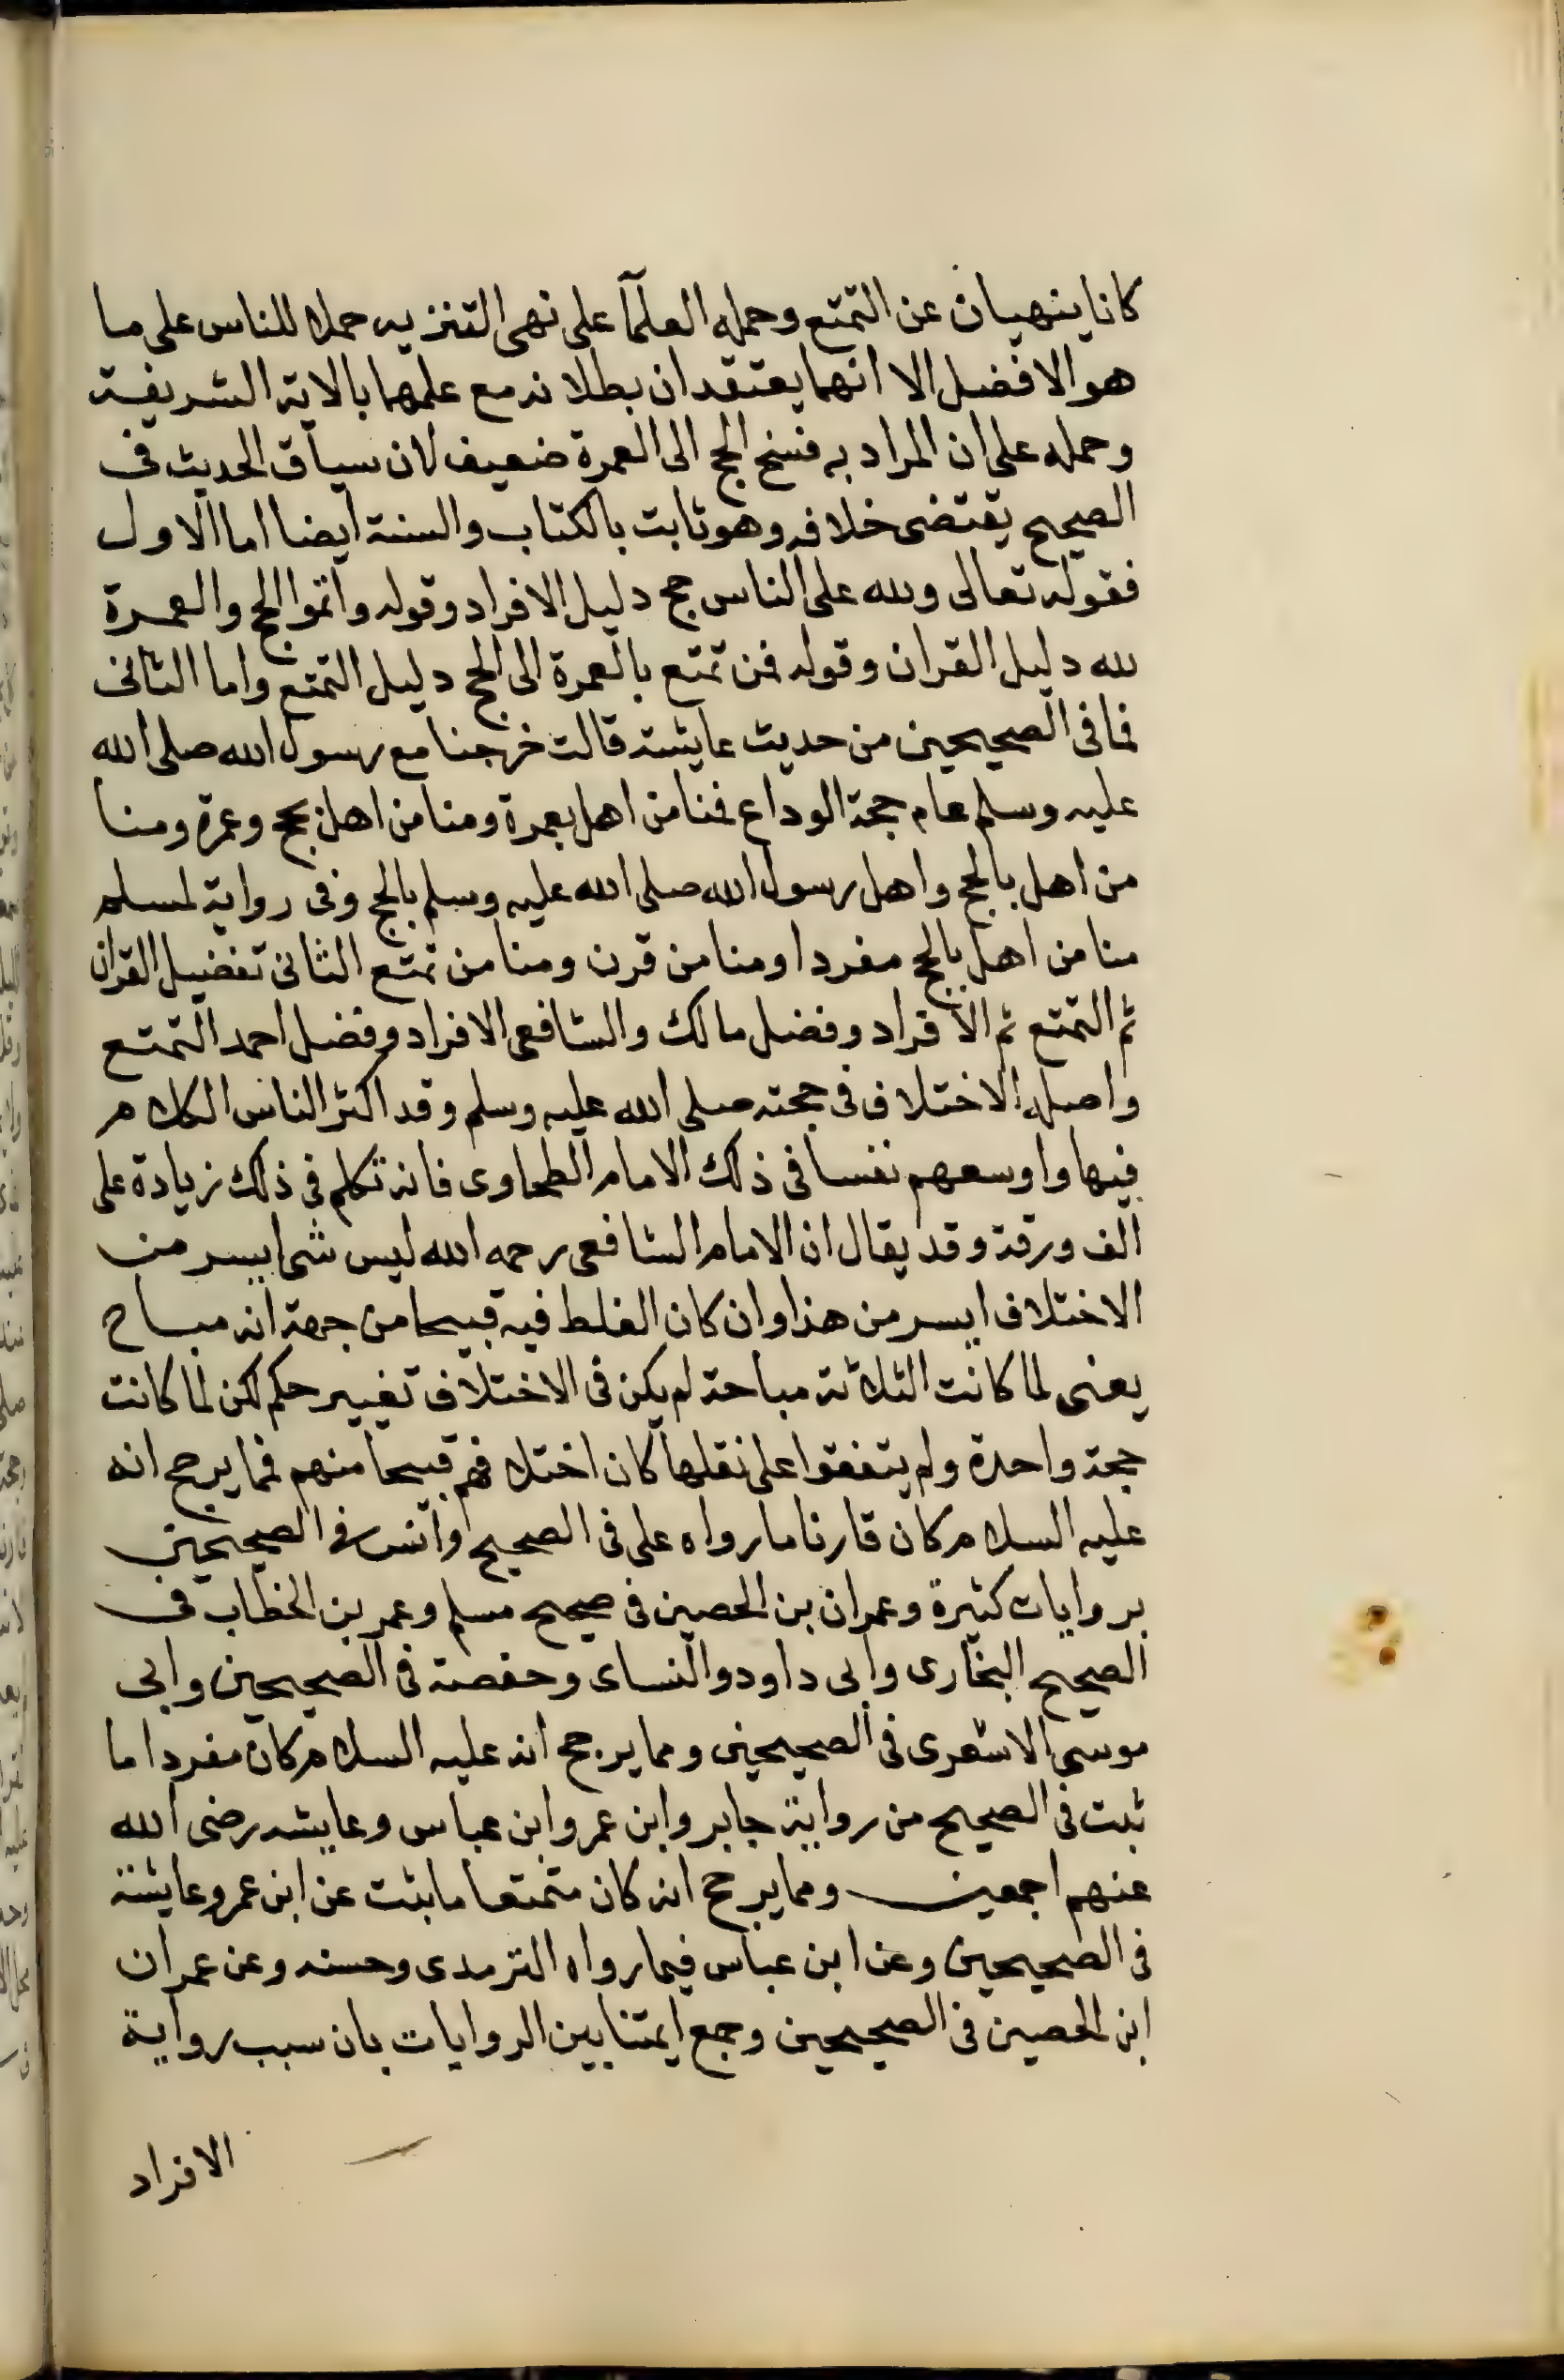 كانا ينهيان عن التمتع وحمله العلمآ على نهى التنزيه حملا للناس على ما
هو الافضل الا انهما يعتقدان بطلانه مع علمهما بالاية الشريفة
وحمله على ان المراد به فسخ الحج الى العمرة ضعيف لان سياق الحديث فى
الصحيح يقتضى خلافه وهو ثابت بالكتاب والسنة ايضا اما الاول
فقوله تعالى ولله على الناس حج دليل الافراد وقوله واتموا الحج والعمرة
لله دليل القران وقوله فمن تمتع بالعمرة الى الحج دليل التمتع واما الثانى
فما فى الصحيحين من حديث عايشة قالت خرجنا مع رسول الله صلى الله
عليه وسلم عام حجة الوداع فمنا من اهل بعمرة ومنا من اهل بحج وعمرة ومنا
من اهل بالحج واهل رسول الله صلى الله عليه وسلم بالحج وفى رواية لمسلم
منا من اهل بالحج مفردا ومنا من قرن ومنا من تمتع الثانى تفضيل القران
ثم التمتع ثم الافراد وفضل مالك والشافعى الافراد وفضل احمد التمتع
واصله الاختلاف فى حجته صلى الله عليه وسلم وقد اكثر الناس الكلام
فيها واوسعهم نفسا فى ذلك الامام الطحاوى فانه تكلم فى ذلك زيادة على
الف ورقة وقد يقال ان الامام الشافعى رحمه الله ليس شى ايسر من
الاختلاف ايسر من هذا وان كان الغلط فيه قبيحا من جهة انه مباح
يعنى لما كانت الثلاثة مباحة لم يكن فى الاختلاف تغيير حكم لكن لما كانت
حجة واحدة ولم يتفقوا على نقلها كان اختلافهم قبيحا منهم فما يرجح انه
عليه السلام كان قارنا ما رواه على فى الصحيح وانس فى الصحيحين
بروايات كثيرة وعمران بن الحصين فى صحيح مسلم وعمر بن الخطاب فى
الصحيح البخارى وابى داود والنساى وحفصة فى الصحيحين وابى
موسى الاشعرى فى الصحيحين ومما يرجح انه عليه السلام كان مفردا ما
ثبت فى الصحيح من رواية جابر وابن عمر وابن عباس وعايشه رضى الله
عنهم اجمعين ومما يرجح انه كان متمتعا ما بثت عن ابن عمر وعايشة
فى الصحيحين وعن ابن عباس فيما رواه الترمدى وحسنه وعن عمران
ابن الحصين فى الصحيحين وجمع ايمتنا بين الروايات بان سبب رواية
الافراد